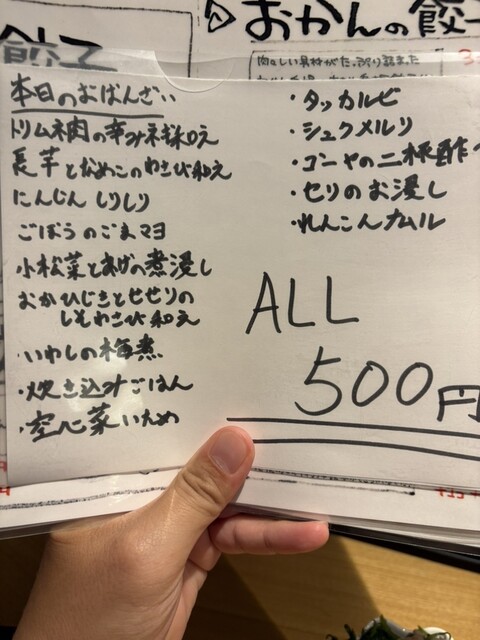 ▷おかんの餃子
餃子
本日のおばんざい
トリム肉の辛みそ和え
長芋となめこのわさび和え
にんじんしりしり
ごぼうのごまマヨ
小松菜とあげの煮浸し
おかひじきとせせりの
しそわさび和え
・いわしの梅煮
・炊き込みごはん
・空心菜いため
・タッカルビ
・シュクメルリ
・ゴーヤの二杯酢
・セリのお浸し
・れんこんナムル
ALL
500円